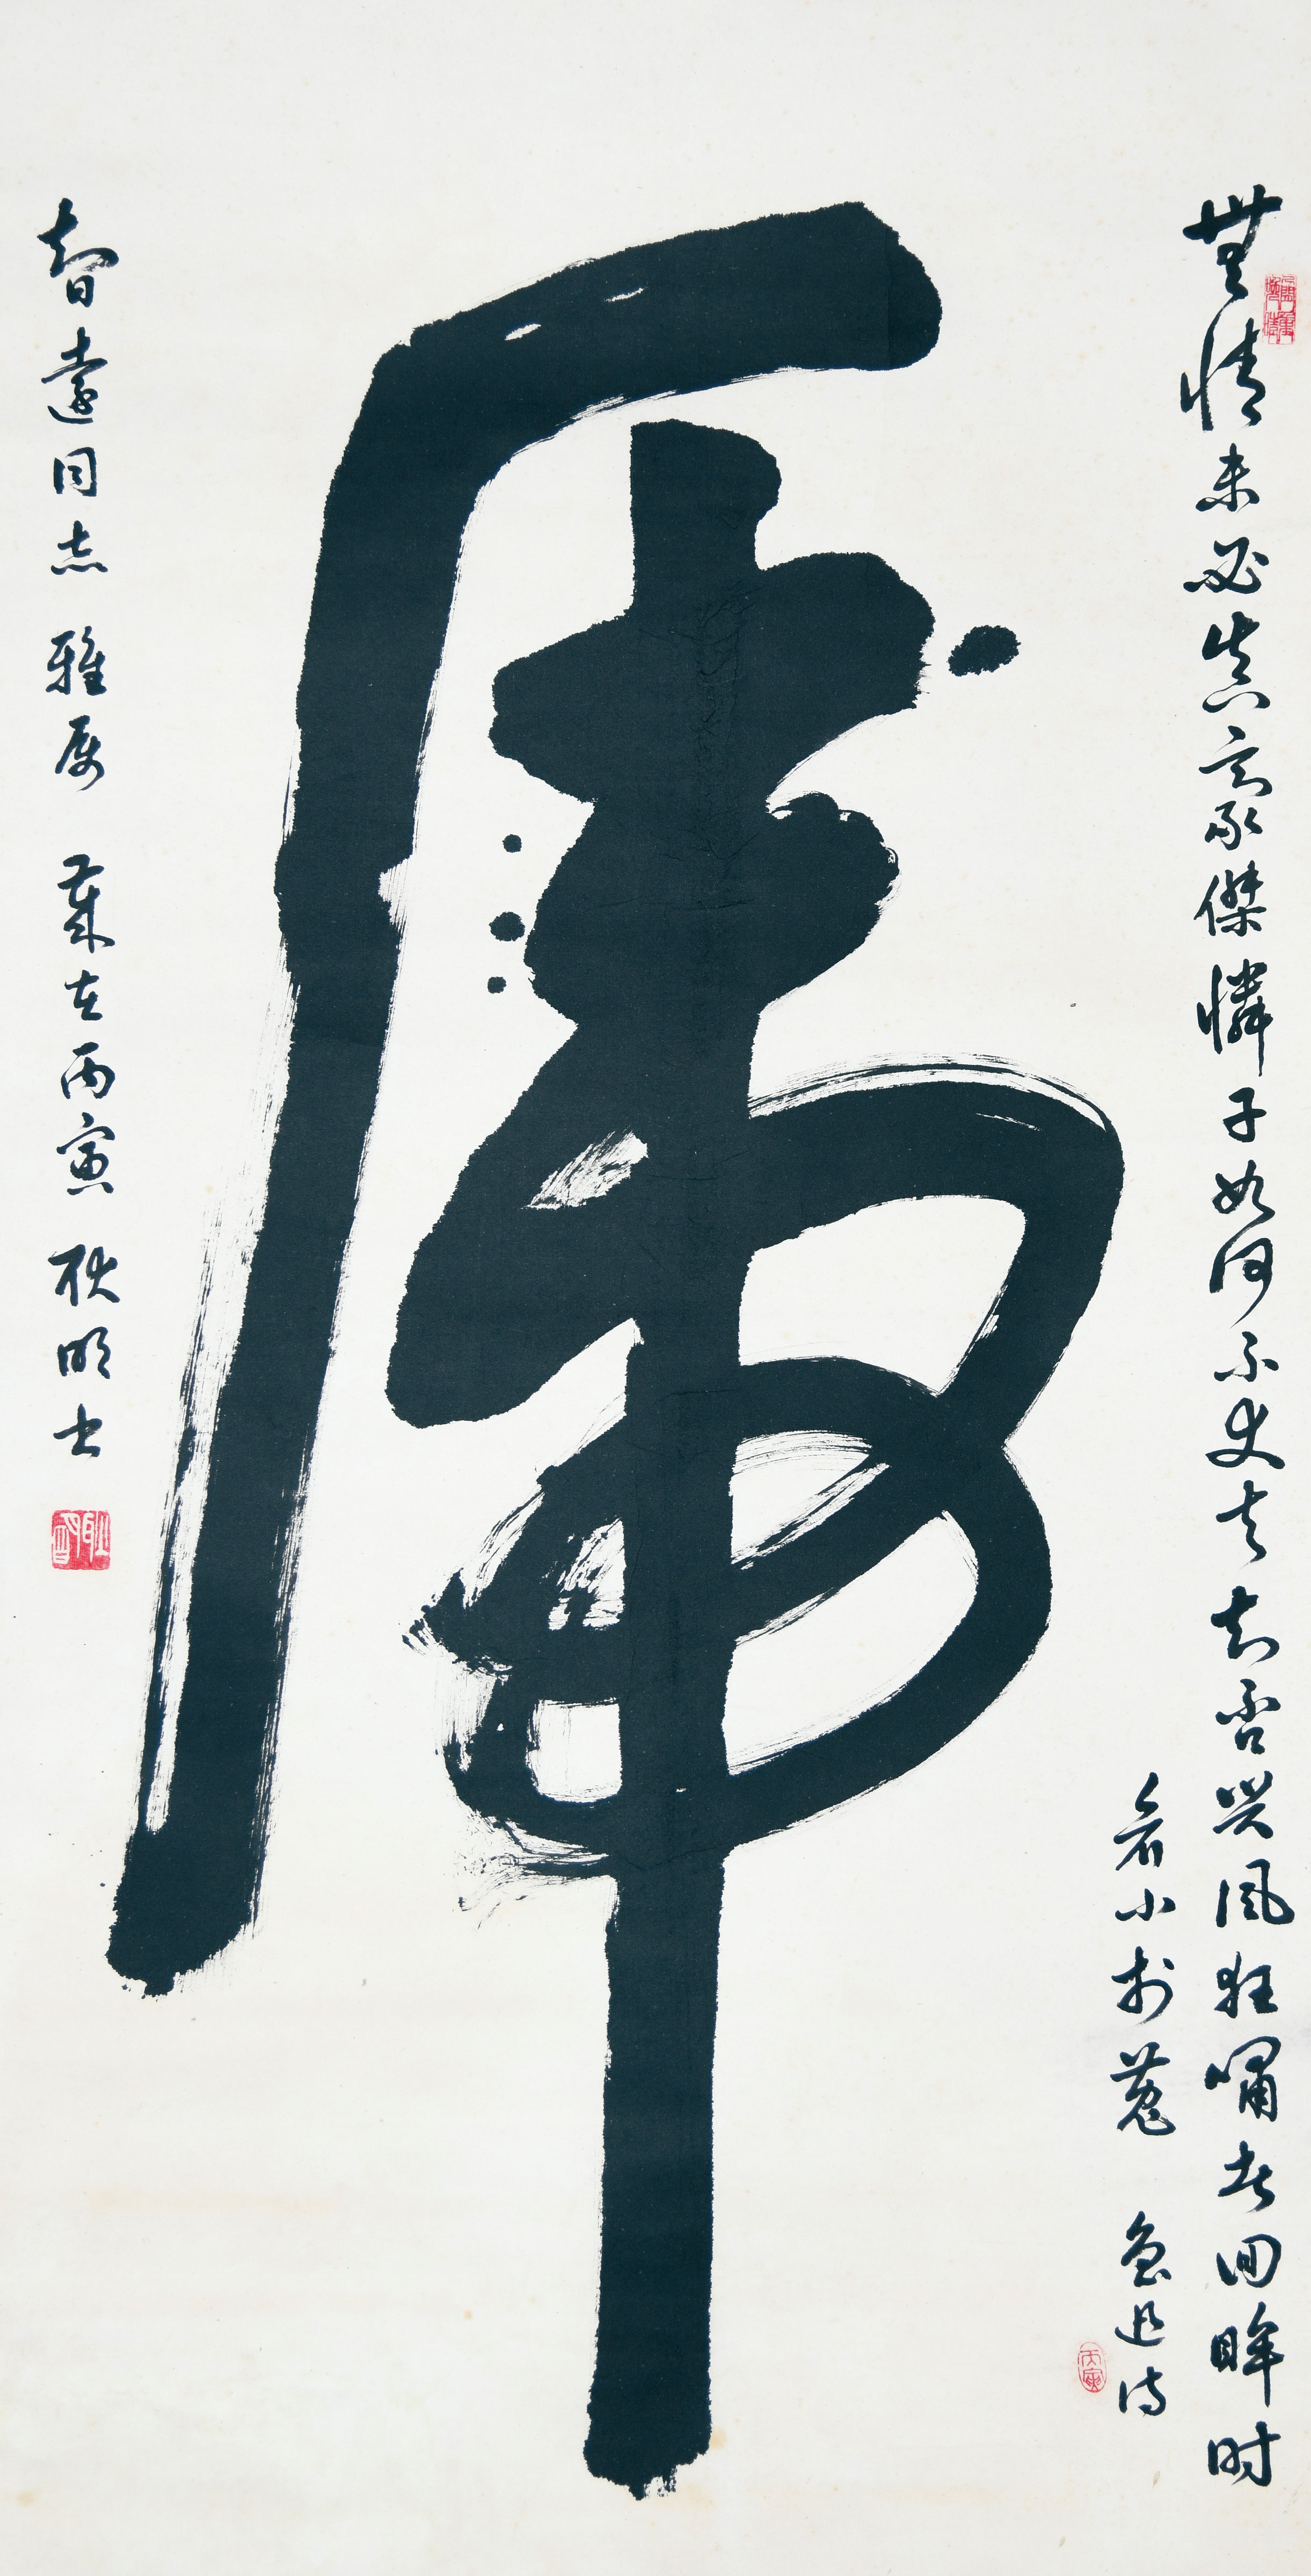 無情未必真豪傑憐子如何不丈夫知否興風狂嘯者回眸时
看小於菟 魯迅诗
虎
智遠同志 雅属 歲在丙寅 耿明书
丙寅